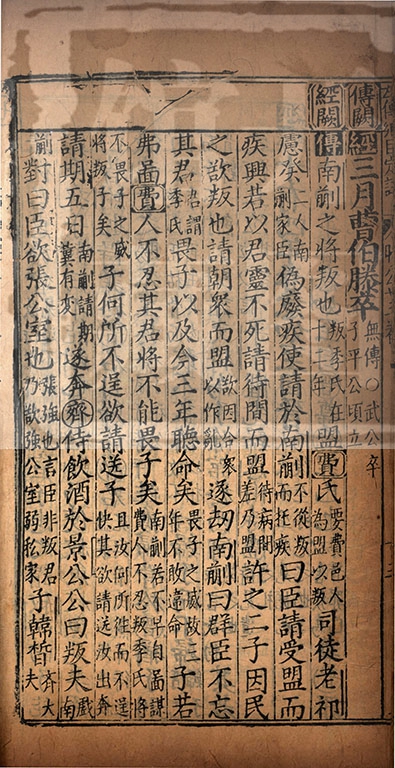 傳闕經三月曹伯滕卒無傳○武公卒子平公頃立
經闕傳南蒯之將叛也叛季氏在十二年盟費氏要費邑人為盟以叛司徒老祁
慮癸二人南蒯家臣偽廢疾使請於南蒯不從叛而托疾曰臣請受盟而
疾興若以君靈不死請待間而盟待病間差乃盟許之二子因民
之欲叛也請朝衆而盟欲因合衆以作亂遂劫南蒯曰群臣不忘
其君君謂季氏畏子以及今三年聽命矣畏子之威故三年不敢違命子若
弗啚費人不忍其君將不能畏子矣南蒯若不早自啚謀費人不忍叛季氏將
不畏子之威將叛子矣子何所不逞欲請送子且汝何所徃而不逞快其欲請送汝出奔
請期五日南蒯請期冀有變遂奔齊侍飲酒於景公公曰叛夫戲南
蒯對曰臣欲張公室也張強也言臣非叛君乃欲強公室弱私家子韓晳齐大夫